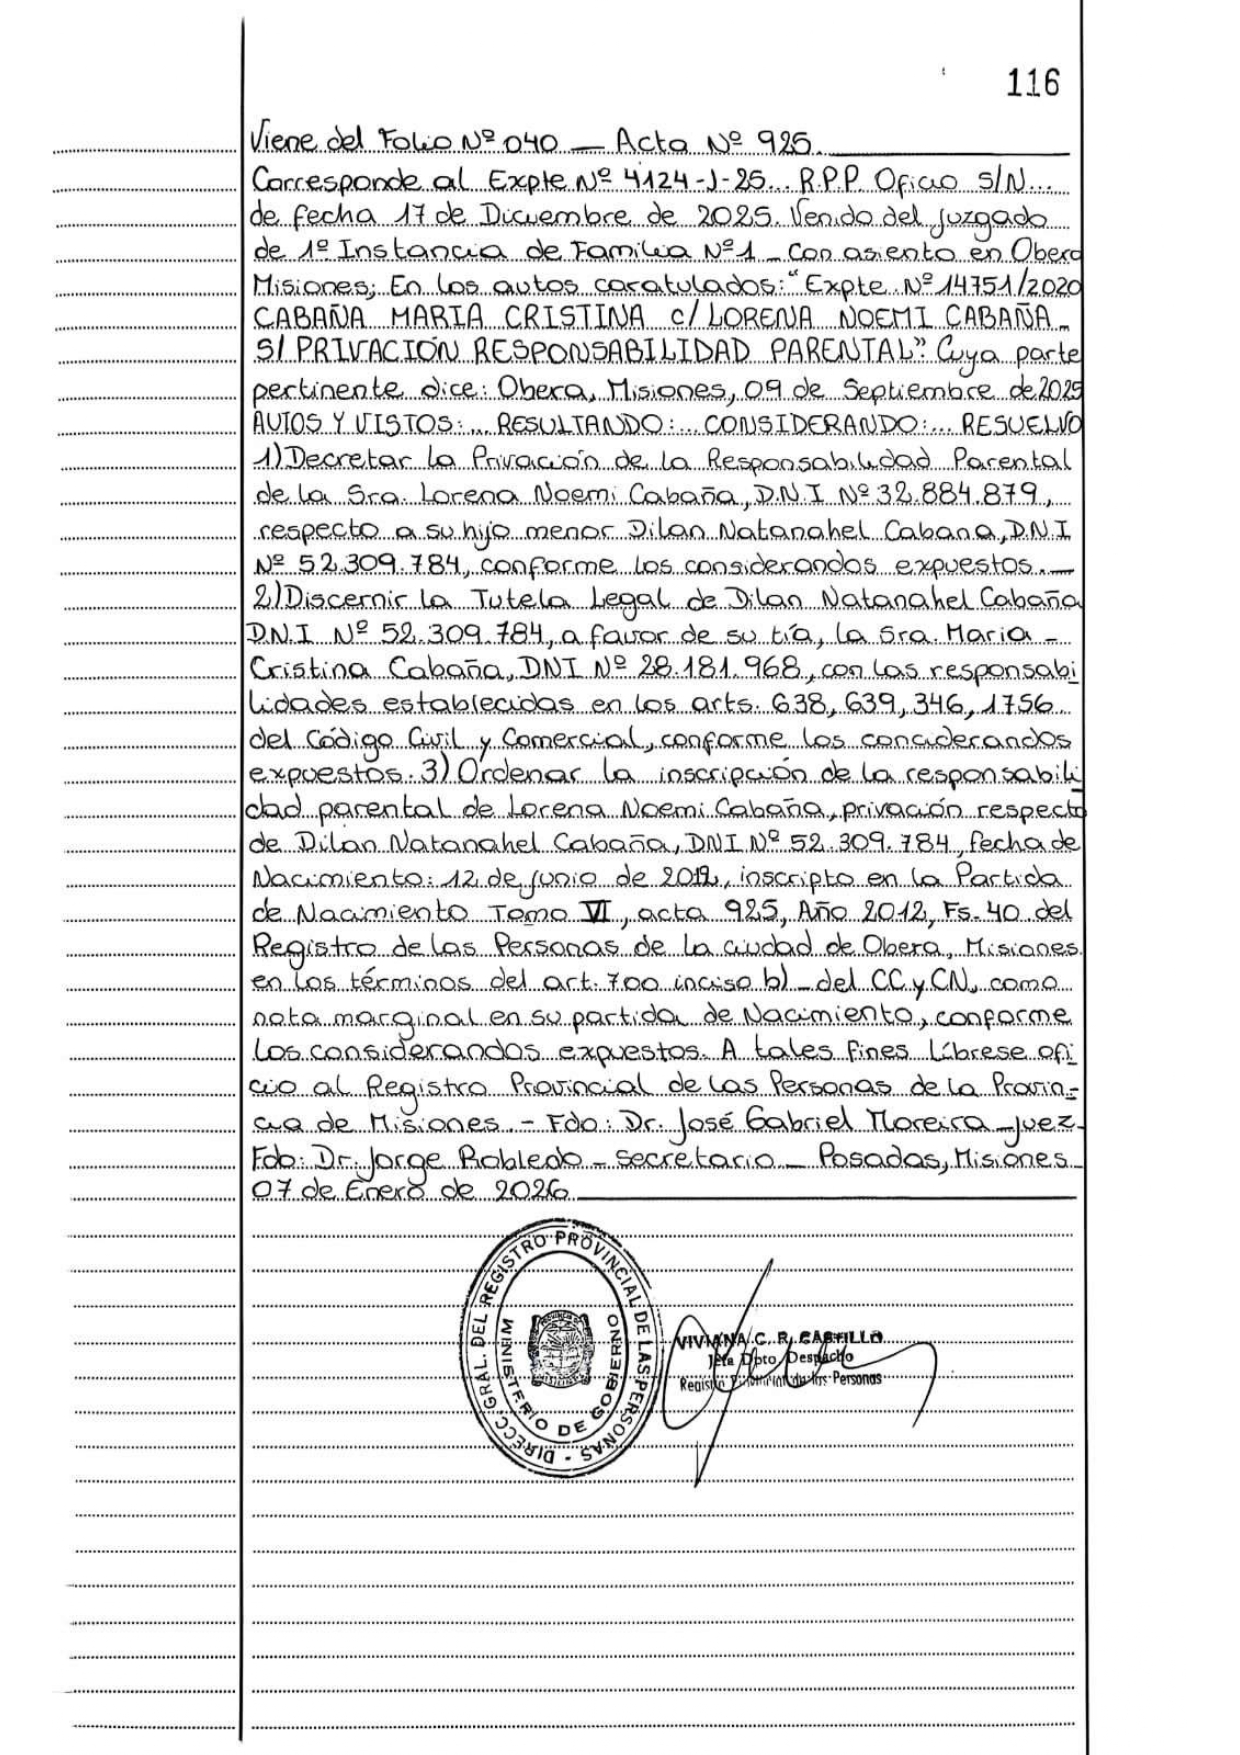 116
Viene del Folio Nº 040 — Acta Nº 925.
Corresponde al Expte Nº 4124-J-25... R.P.P. Oficio S/N...
de fecha 17 de Diciembre de 2025. Venido del Juzgado
de 1º Instancia de Familia Nº 1 _ Con asiento en Obera
Misiones; En los autos caratulados: "Expte. Nº 14751/2020
CABAÑA MARIA CRISTINA c/ LORENA NOEMI CABAÑA_
S/ PRIVACIÓN RESPONSABILIDAD PARENTAL" Cuya parte
pertinente dice: Obera, Misiones, 09 de Septiembre de 2025
AUTOS Y VISTOS:... RESULTANDO:... CONSIDERANDO:... RESUELVO
1) Decretar la Privación de la Responsabilidad Parental
de la Sra. Lorena Noemi Cabaña, D.N.I Nº 32.884.879,
respecto a su hijo menor Dilan Natanahel Cabana, D.N.I
Nº 52.309.784, conforme los considerandos expuestos.—
2) Discernir la Tutela Legal de Dilan Natanahel Cabaña
D.N.I Nº 52.309.784, a favor de su tía, la Sra. Maria -
Cristina Cabaña, DNI Nº 28.181.968, con las responsabi
lidades establecidas en los arts. 638, 639, 346, 1756
del Código Civil y Comercial, conforme los conciderandos
expuestos. 3) Ordenar la inscripción de la responsabili
dad parental de Lorena Noemi Cabaña, privación respecto
de Dilan Natanahel Cabaña, DNI Nº 52.309.784, fecha de
Nacimiento: 12 de Junio de 2012, inscripto en la Partida
de Nacimiento Tomo VI, acta 925, Año 2012, Fs. 40 del
Registro de las Personas de la ciudad de Obera, Misiones
en los términos del art. 700 inciso b) _ del CC y CN, como
nota marginal en su partida de Nacimiento, conforme
los considerandos expuestos. A tales fines Líbrese ofi
cio al Registro Provincial de las Personas de la Provin-
cia de Misiones. - Fdo: Dr. José Gabriel Moreira - Juez -
Fdo: Dr. Jorge Robledo - Secretario _ Posadas, Misiones
07 de Enero de 2026
DIRECC. GRAL. DEL REGISTRO PROVINCIAL DE LAS PERSONAS -
MINISTERIO DE GOBIERNO
VIVIANA C. R. CASTILLO
Jefa Dpto. Despacho
Registro Provincial de las Personas